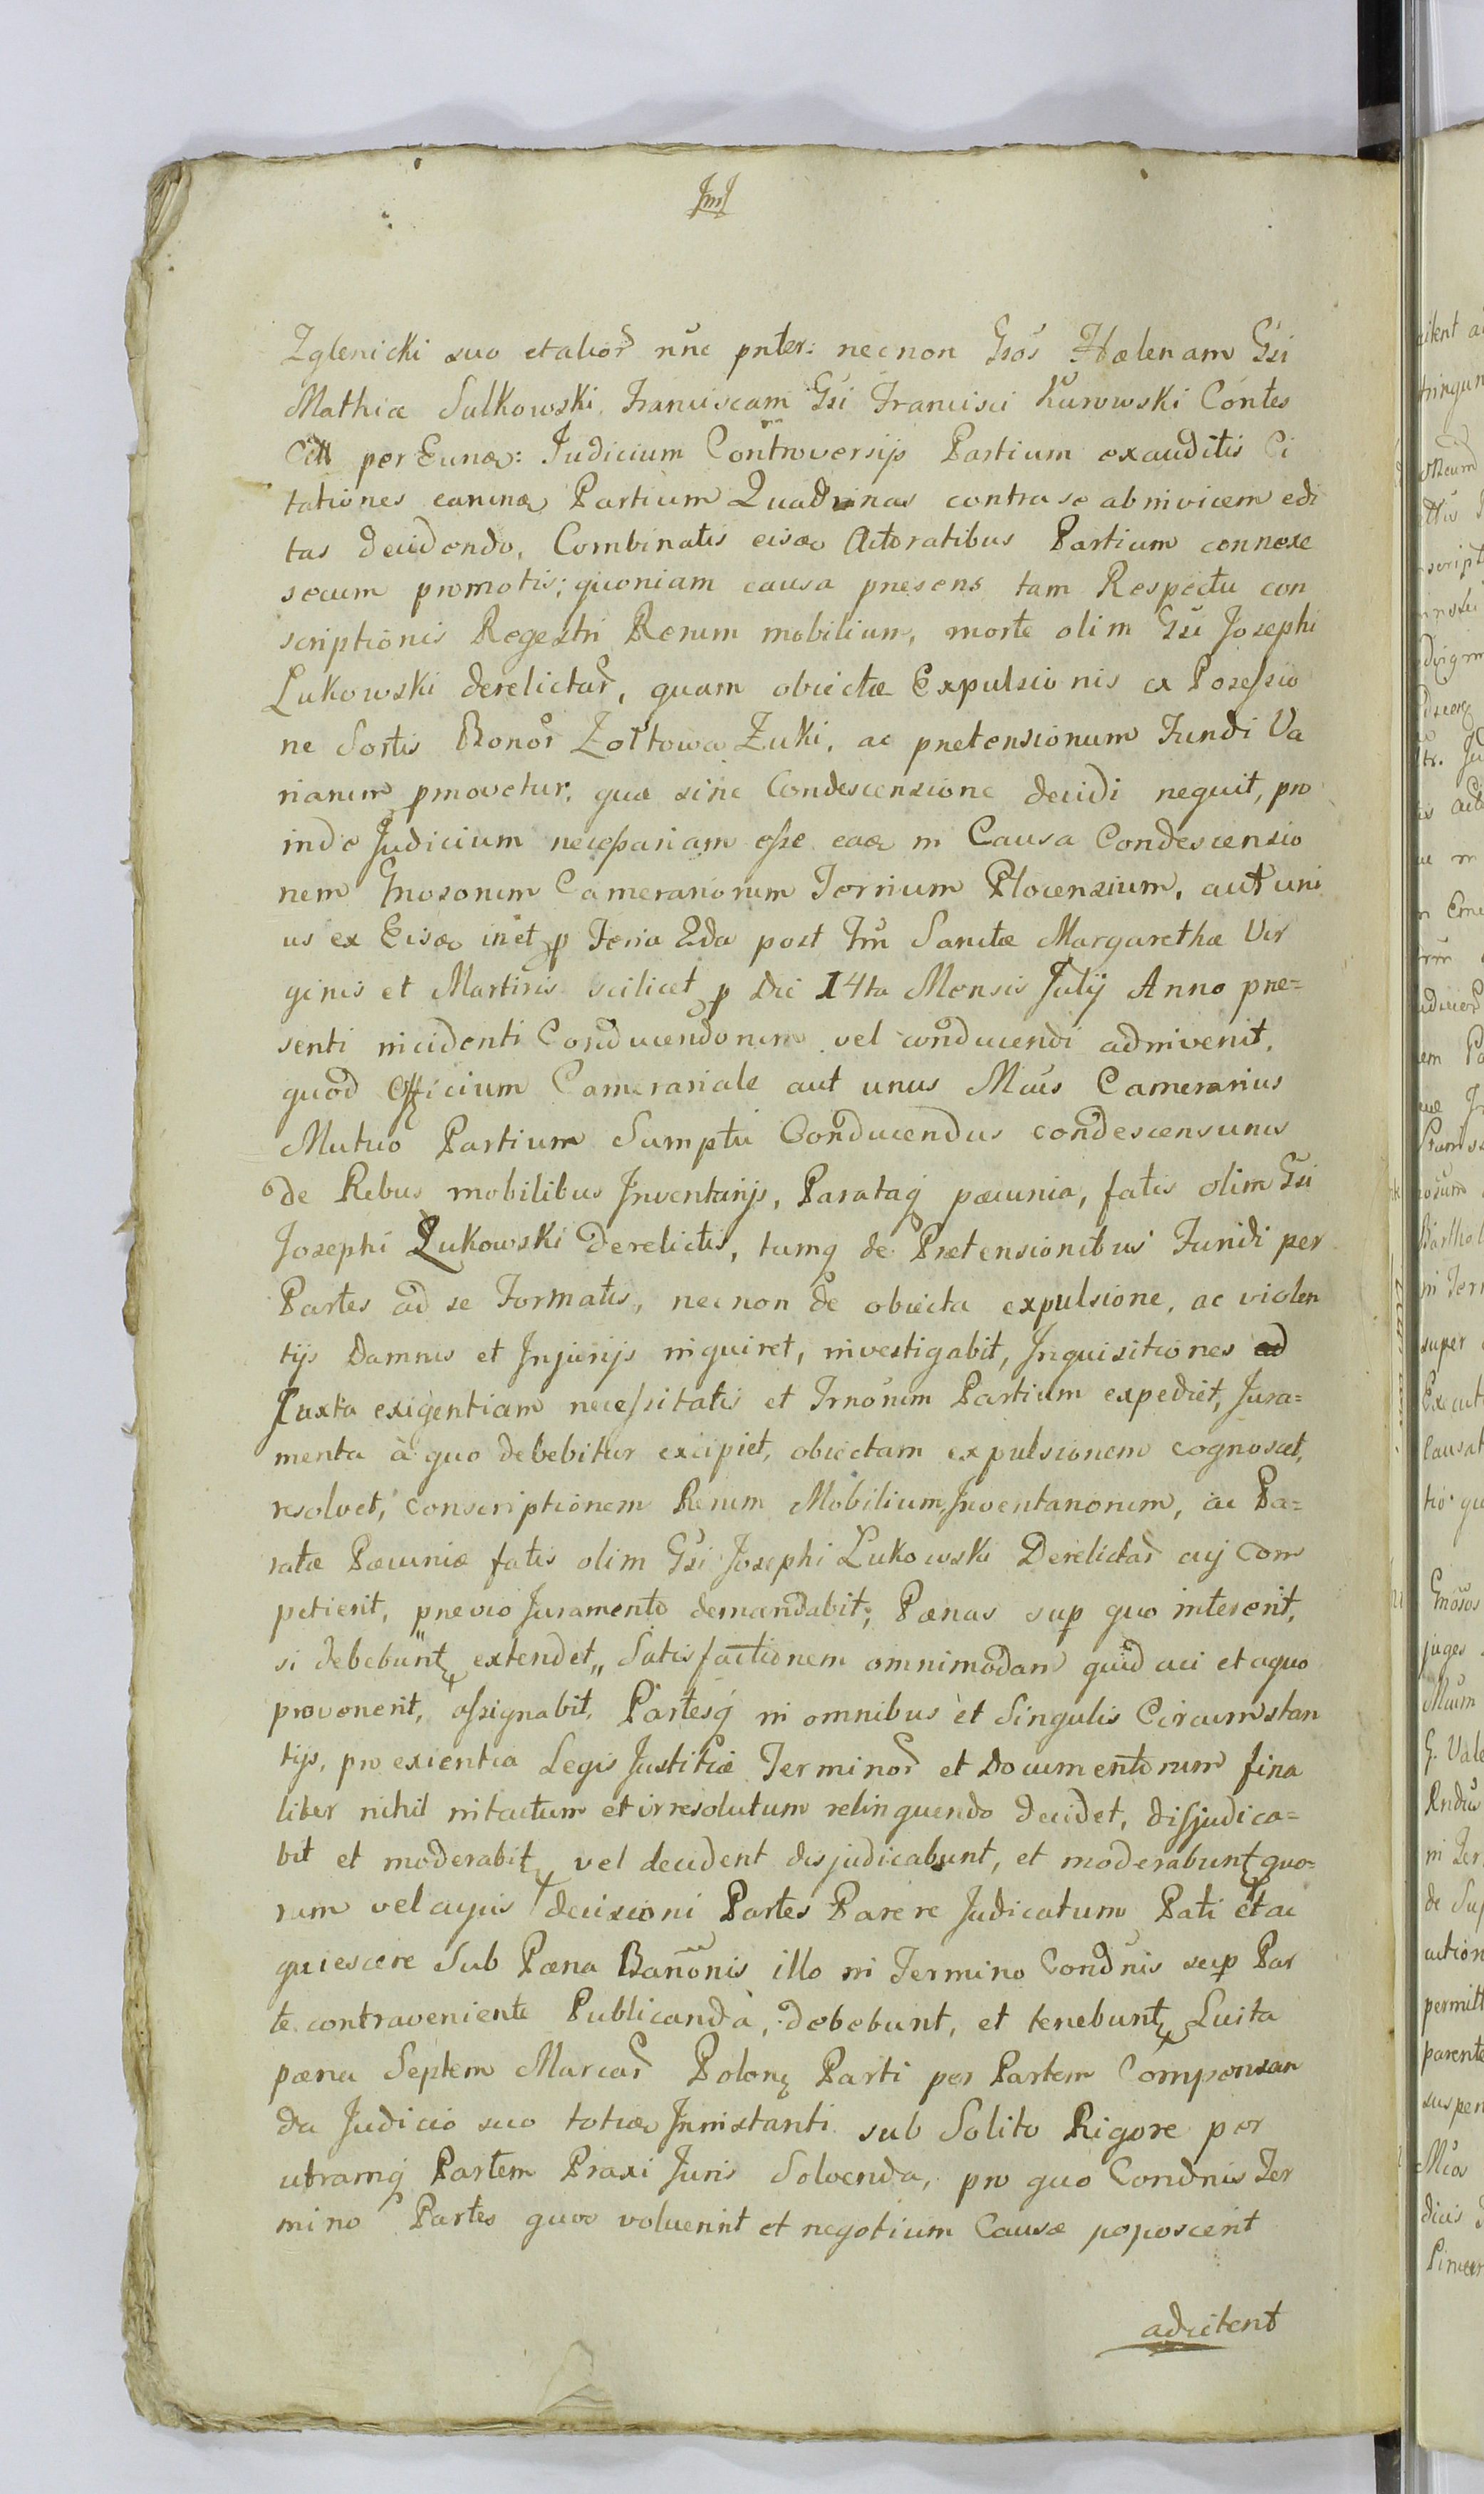 Zglenicki suo et alior nunc pnter: necnon Gsos Hælenam Gsi
Mathiæ Sulkowski, Franciscam Gsi Francisci Kurowski Contes
Citt per Eunq: Judicium Controversijs Partium exauditis Ci
tationes earunq Partium Quadrinas contra se abinvicem edi
tas decidendo, Combinatis eisq Actoratibus Partium connexe
secum promotis; quoniam causa præsens tam Respectu con
scriptionis Regestri Rerum mobilium, morte olim Gsi Josephi
Lukowski derelictar, quam obiectæ Expulsionis ex Posessio
ne Sortis Bonor Zołtowa Zuki, ac prætensionum Fundi Va
riarum pmovetur, quæ sine Condescensione decidi nequit, pro
inde Judicium necessariam esse eaq in Causa Condescensio
nem Gnosorum Camerariorum Terrium Plocensium, aut uni
us ex Eisq inet p Feria 2da post Ftu Sanctæ Margarethæ Vir
ginis et Martiris scilicet p Die 14ta Mensis Julij Anno præ=
senti incidenti Conducendorum vel conducendi adinvenit,
quod Officium Camerariale aut unus Mcus Camerarius
Mutuo Partium Sumptu Conducendus condescensurus
de Rebus mobilibus Inventarijs, Parataq pæcunia, fatis olim Gsi
Josephi Lukowski derelictis, tumq de Prætensionibus Fundi per
Partes ad se Formatis, necnon de obiecta expulsione, ac violen
tijs Damnis et Injurijs inquiret, investigabit, Inquisitiones ad
Juxta exigentiam necessitatis et Trnorum Partium expediet, Jura=
menta à quo debebitur excipiet, obiectam expulsionem cognoscet,
resolvet, conscriptionem Rerum Mobilium, Inventariorum, ac Pa=
ratæ Pæcuniæ fatis olim Gsi Josephi Lukowski Derelictar cuj Com
petierit, prævio Juramento demandabit, Pænas sup quo intererit,
si debebunt extendet „ Satisfactionem omnimodam quid cui et a quo
provenerit, assignabit, Partesq in omnibus et Singulis Circumstan
tijs, pro exientia Legis Justitiæ Terminor et Documentorum fina
liter nihil intactum et irresolutum relinquendo decidet, disjudica=
bit et moderabit, vel decident disjudicabunt, et moderabunt quo=
rum vel cujus decisioni Partes Parere Judicatum Pati et ac
quiescere Sub Pæna Bannonis illo in Termino Condnis sup Par
te contraveniente Publicanda, debebunt, et tenebunt, Luita
pæna Septem Marcar Polonq Parti per Partem Compensan
da Judicio suo totiq Instanti sub Solito Rigore per
utramq Partem Praxi Juris Solvenda, pro quo Condnis Ter
mino Partes quos voluerint et negotium Causæ poposcerit
adcitent